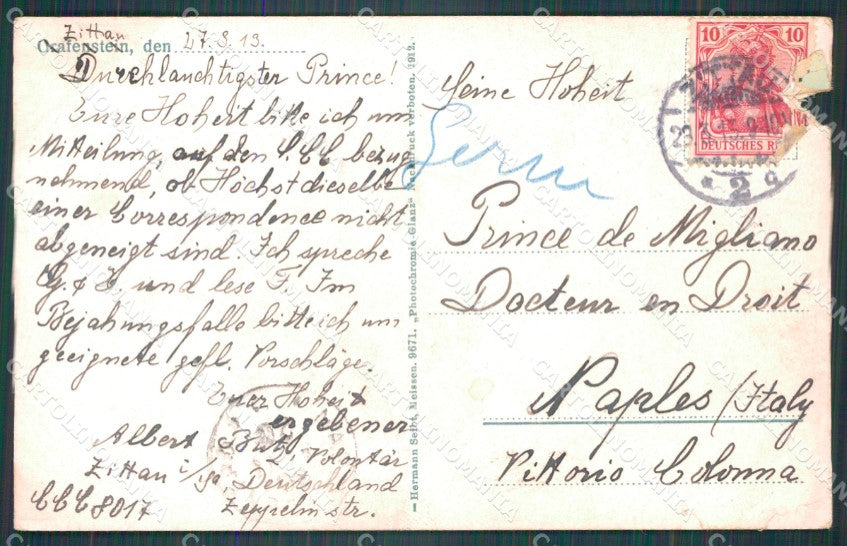 Zittau
Grafenstein, den 27.3.13.
Durchlauchtigster Prince!
Eure Hoheit bitte ich um
Mitteilung, auf den C.C.C bezug-
nehmend, ob Höchstdieselbe
einer Correspondence nicht
abgeneigt sind. Ich spreche
G. & E. und lese F. Im
Bejahungsfalle bitte ich um
geeignete gefl. Vorschläge.
Euer Hoheit
ergebener
Albert Butz Volontär
Zittau i/Sa. Deutschland
CCC 8017 Zeppelinstr.
— Hermann Seibt, Meissen. 9671. „Photochromie-Glanz“ Nachdruck verboten. 1912.
Seine Hoheit
Prince de Migliano
Docteur en Droit
Naples / Italy
Vittorio Colonna
10 10
DEUTSCHES R
ZITTAU
2
CARTOLINOMANIA